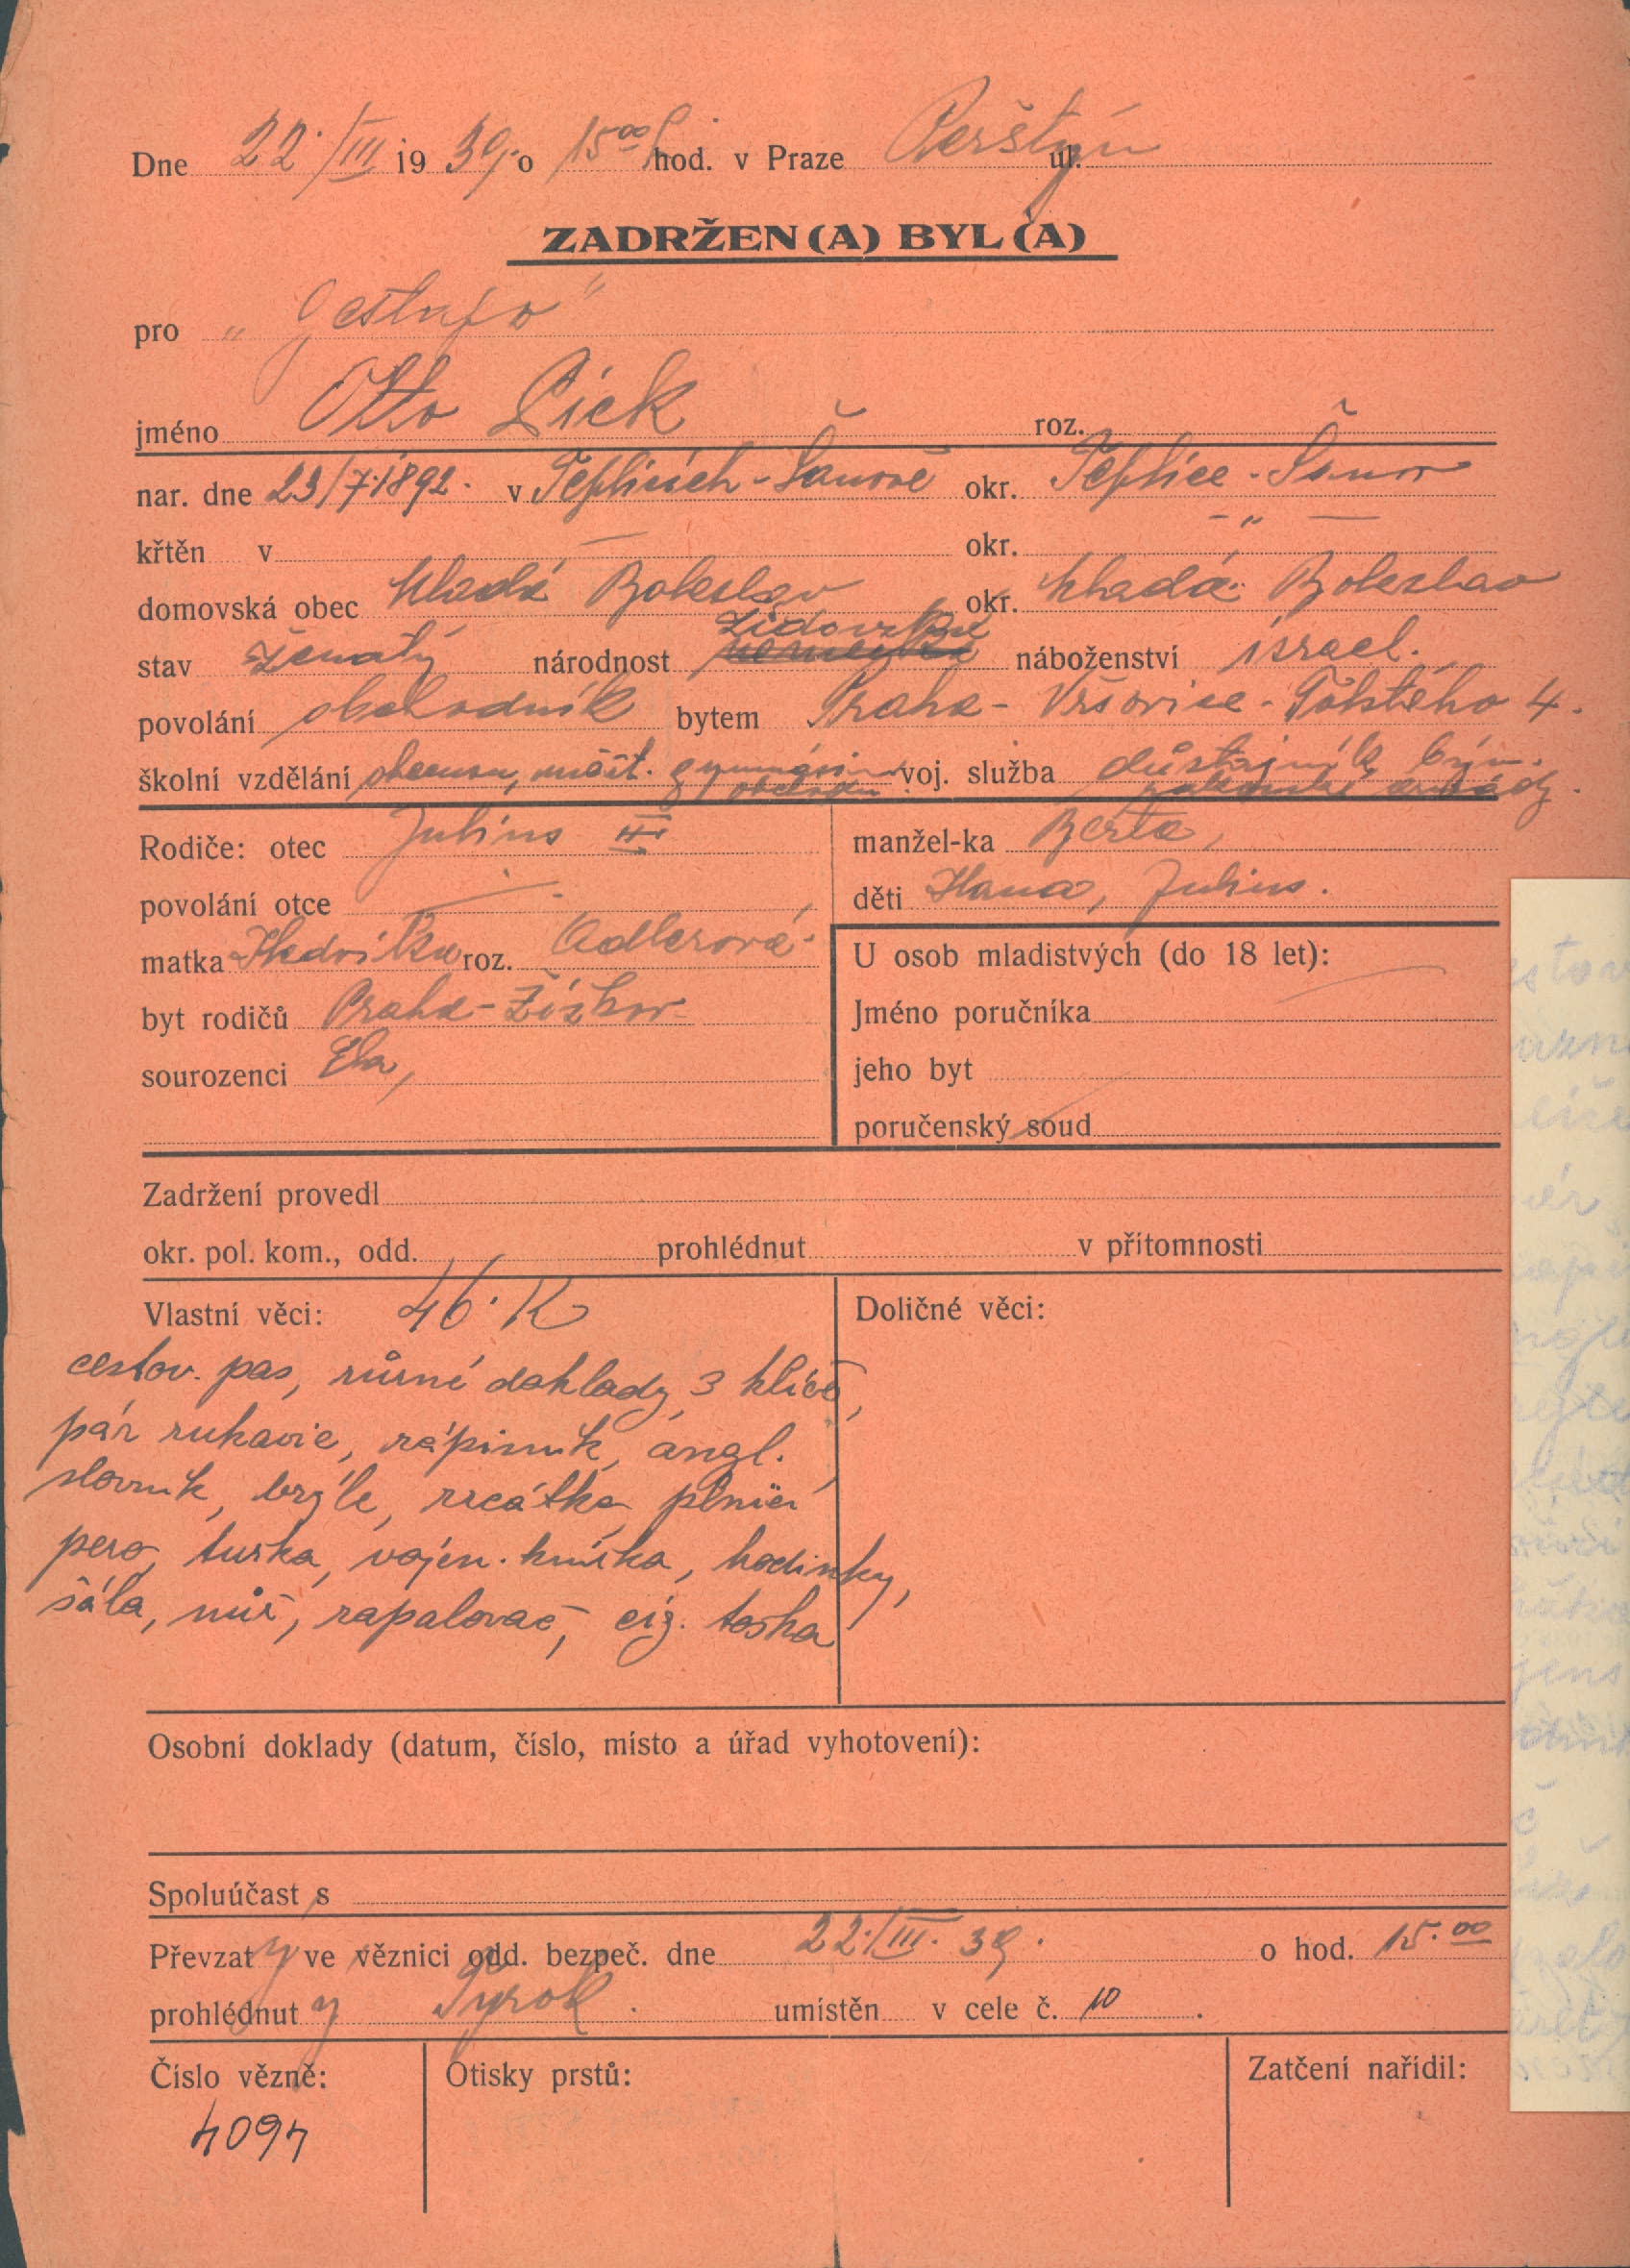 Dne 22./III 1939 o 15 00 hod. v Praze Perštýn ul.
ZADRŽEN(A) BYL(A)
pro „Gestapo"
jméno Otto Pick roz.
nar. dne 23/7.1892. v Teplicích-Šanově okr. Teplice-Šanov
křtěn v — okr. — " —
domovská obec Mladá Boleslav okr. Mladá Boleslav
židovská
stav ženatý národnost německá náboženství israel.
povolání obchodník bytem Praha - Vršovice - Tolstého 4.
školní vzdělání obecnou, měšt. gymnasium voj. služba důstojník býv.
rakouské armády.
Rodiče: otec Julius
manžel-ka Berta,
povolání otce —
děti Hana, Julius.
matka Hedvika roz. Adlerová
U osob mladistvých (do 18 let):
byt rodičů Praha-Žižkov
Jméno poručníka
sourozenci Ela,
jeho byt
poručenský soud
Zadržení provedl
okr. pol. kom., odd. prohlédnut v přítomnosti
Vlastní věci: 46. K
Doličné věci:
cestov. pas, různé doklady, 3 klíče,
pár rukavic, zápisník, angl.
slovník, brýle, zrcátko, plnicí
pero, tužka, vojen. knížka, hodinky,
šála, nůž, zapalovač, cig. taška
Osobní doklady (datum, číslo, místo a úřad vyhotovení):
Spoluúčast s
Převzat ve věznici odd. bezpeč. dne 22./III. 39. o hod. 15.00
prohlédnut umístěn v cele č. 10.
Číslo vězně:
Otisky prstů:
Zatčení nařídil:
4094